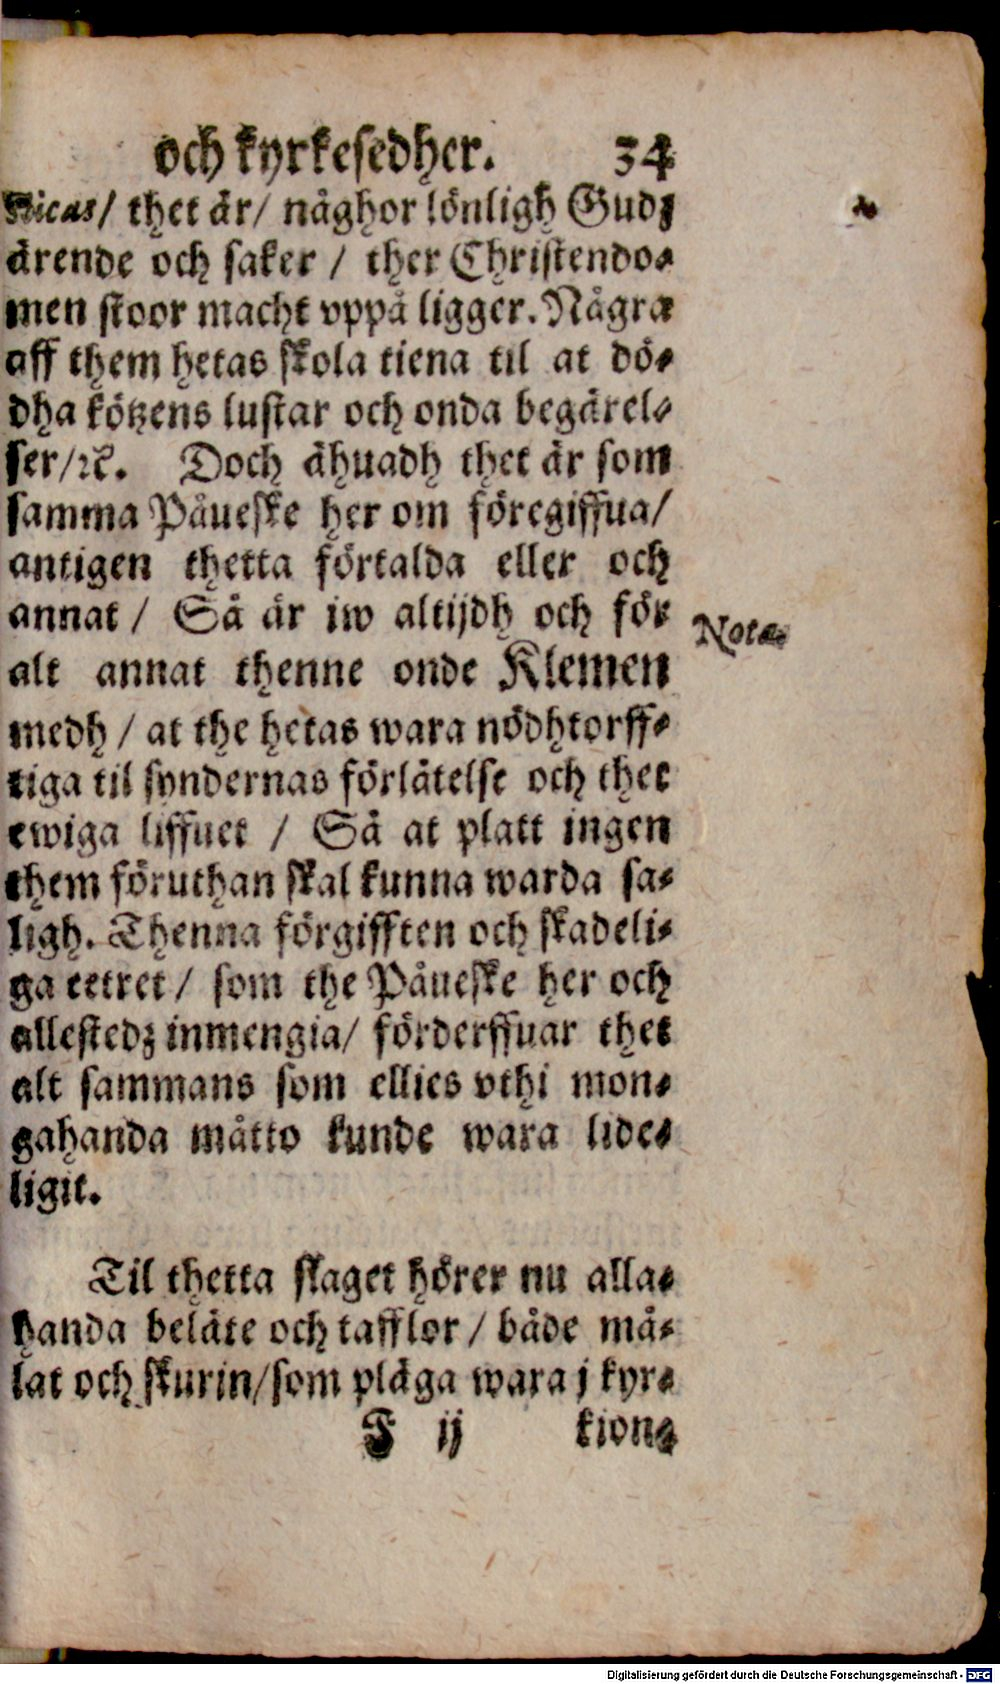 och kyrkesedher. 34
sticas/ thet är/ någhor lönligh Gudz
ärende och saker / ther Christendo⸗
men stoor macht vppå ligger. Några
aff them hetas skola tiena til at dö⸗
dha kötzens lustar och onda begärel⸗
ser/ꝛc. Doch ähuadh thet är som
samma Påueske her om föregiffua/
antigen thetta förtalda eller och
annat / Så är iw altijdh och för
Nota.
alt annat thenne onde Klemen
medh / at the hetas wara nödhtorff⸗
tiga til syndernas förlåtelse och thet
ewiga liffuet / Så at platt ingen
them föruthan skal kunna warda sa⸗
ligh. Thenna förgifften och skadeli⸗
ga eetret / som the Påueske her och
allestedz inmengia/ förderffuar thet
alt sammans som ellies vthi mon⸗
gahanda måtto kunde wara lide⸗
ligit.
Til thetta slaget hörer nu alla⸗
handa beläte och tafflor / både må⸗
lat och skurin/som pläga wara j kyr⸗
F ij kion⸗
Digitalisierung gefördert durch die Deutsche Forschungsgemeinschaft - DFG